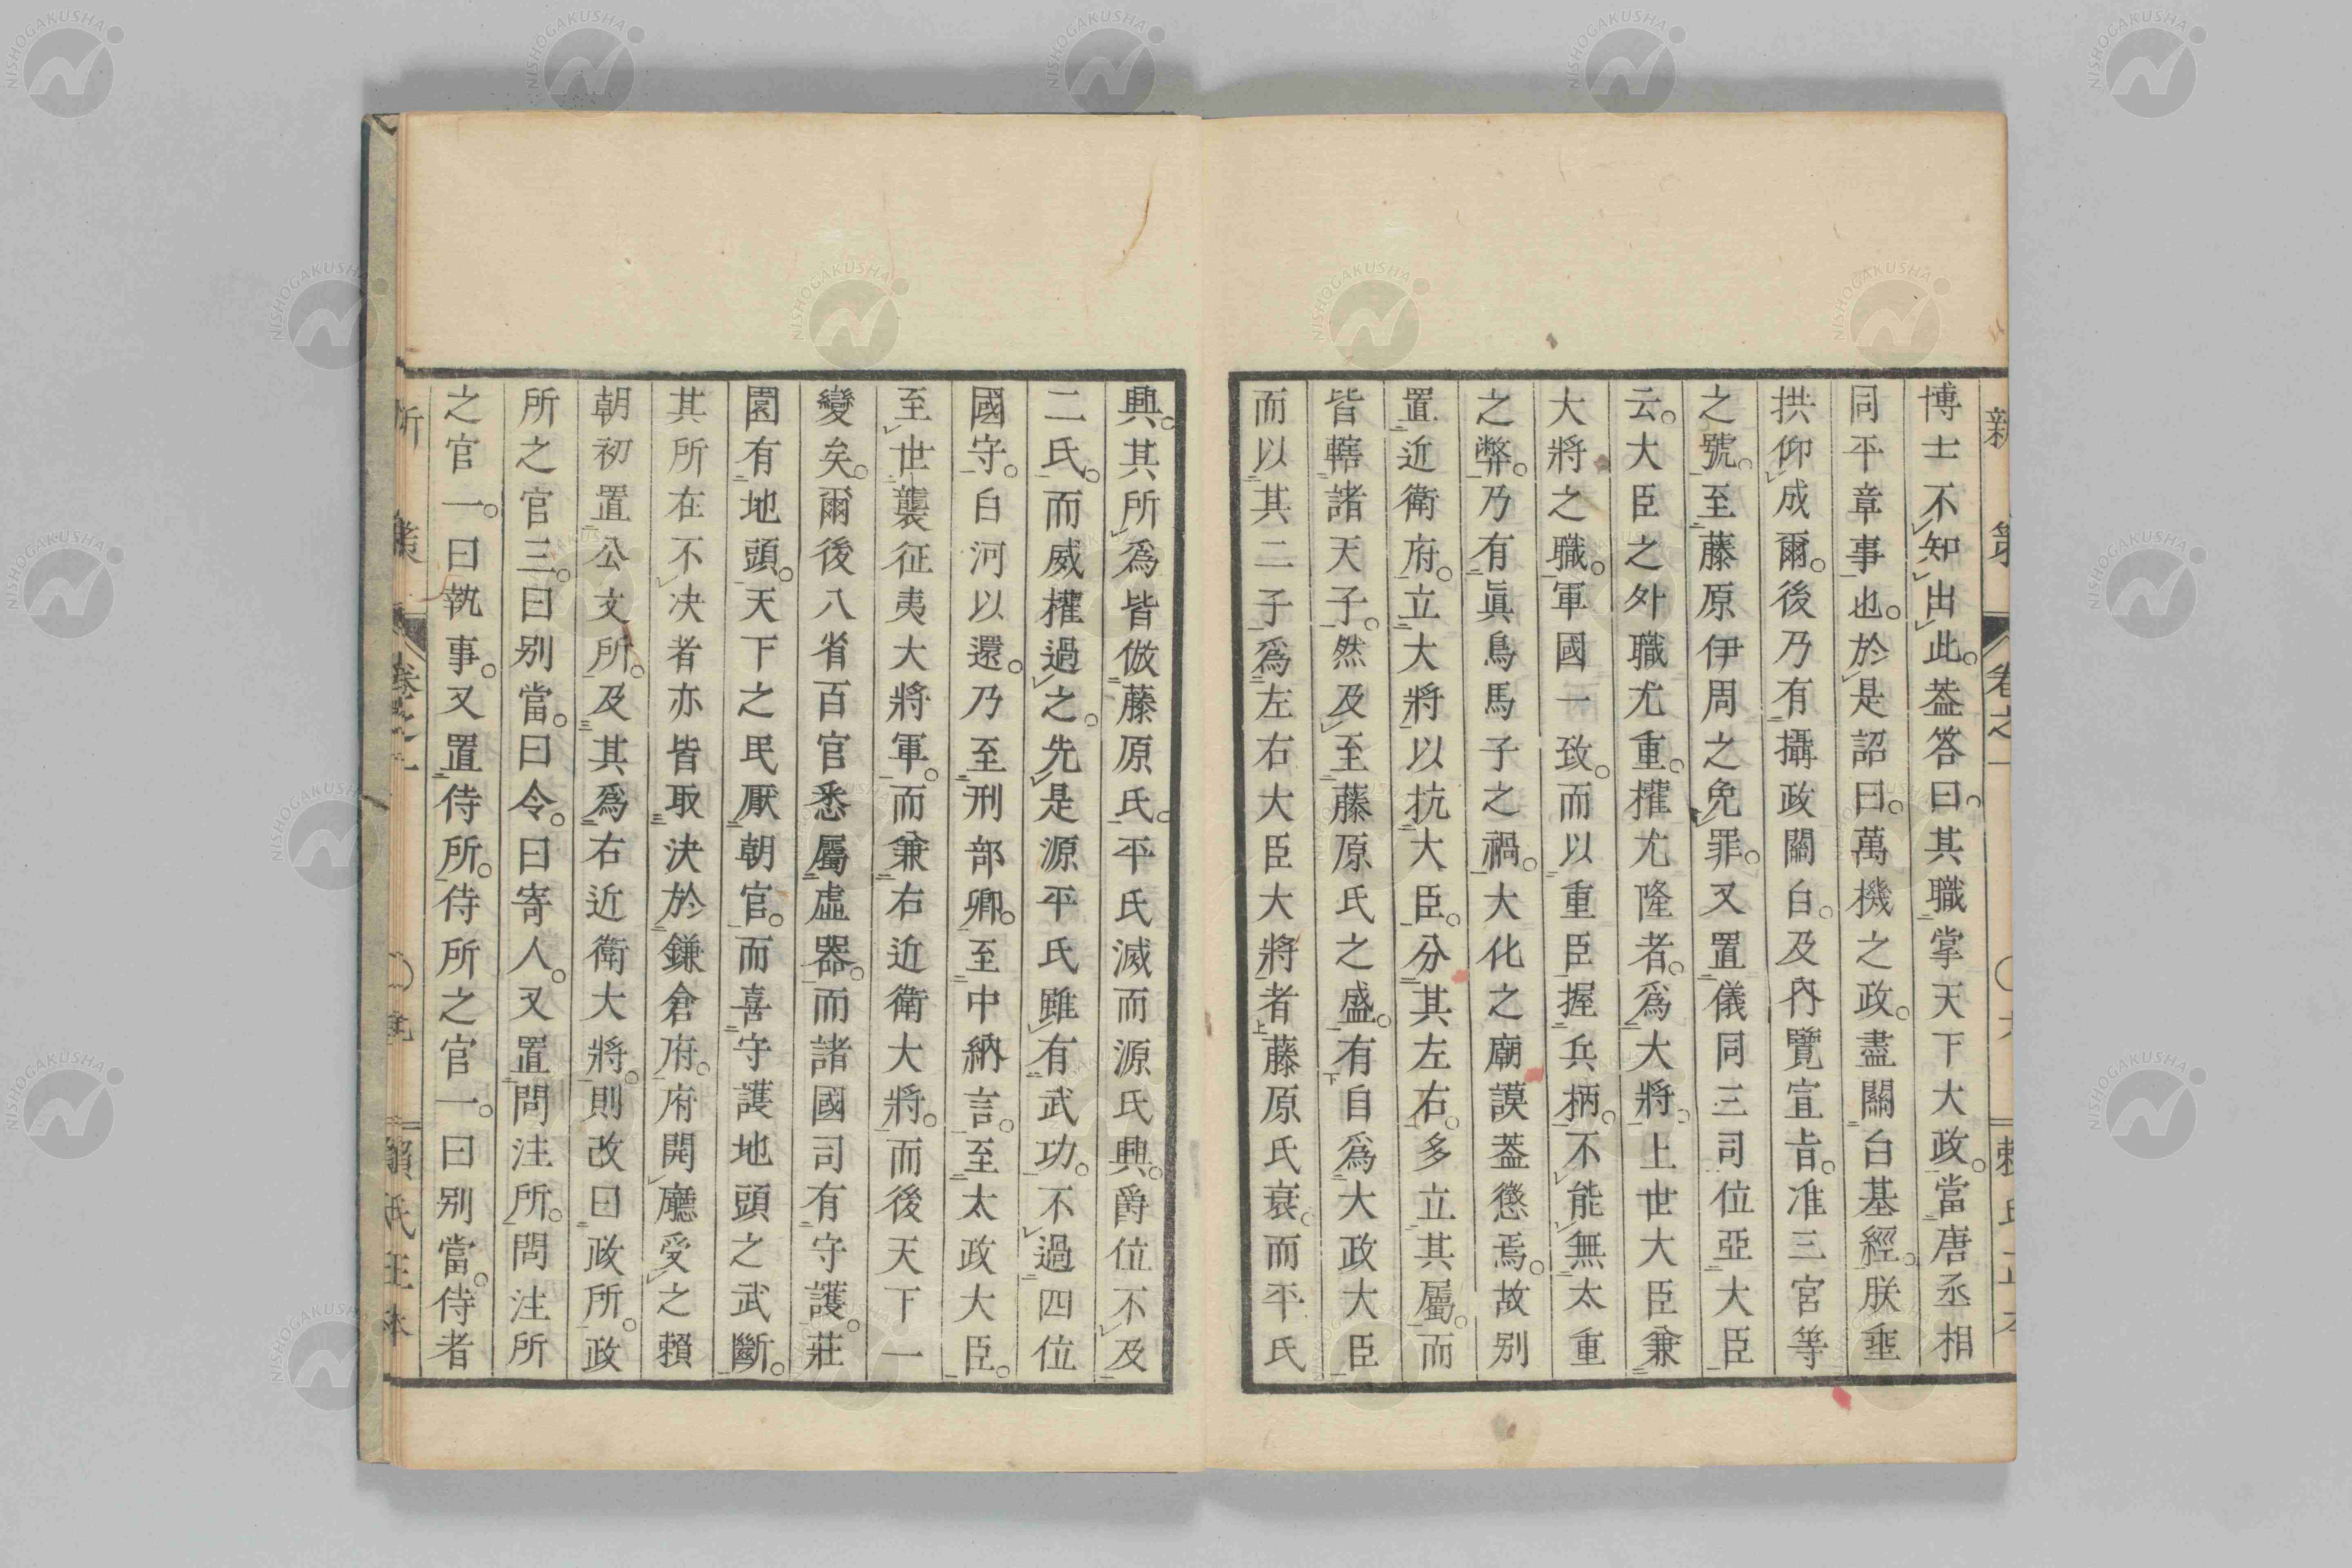 新策 卷之一
博士不知出此。葢答曰。其職掌天下大政。當唐丞相
同平章事也。於是詔曰。萬機之政。盡關白基經。朕垂
拱仰成爾。後乃有攝政關白。及內覽宣旨。准三宮等
之號。至藤原伊周之免罪。又置儀同三司位亞大臣
云。大臣之外職尤重。權尤隆者。爲大將。上世大臣兼
大將之職。軍國一致。而以重臣握兵柄。不能無太重
之弊。乃有眞鳥馬子之禍。大化之廟謨葢懲焉。故別
置近衛府。立大將以抗大臣。分其左右。多立其屬。而
皆轄諸天子。然及至藤原氏之盛。有自爲大政大臣
而以其二子爲左右大臣大將者藤原氏衰。而平氏
興。其所爲皆倣藤原氏。平氏滅而源氏興。爵位不及
二氏。而威權過之。先是源平氏雖有武功。不過四位
國守。白河以還。乃至刑部卿。至中納言。至太政大臣。
至世襲征夷大將軍。而兼右近衛大將。而後天下一
變矣。爾後八省百官悉屬虛器。而諸國司有守護。莊
園有地頭。天下之民厭朝官。而喜守護地頭之武斷。
其所在不決者亦皆取決於鎌倉府。府開廳受之賴
朝初置公文所。及其爲右近衛大將。則改曰政所。政
所之官三。曰別當。曰令。曰寄人。又置問注所。問注所
之官一。曰執事。又置侍所。侍所之官一。曰別當。侍者
卷之一
賴氏正本
NISHOGAKUSHA